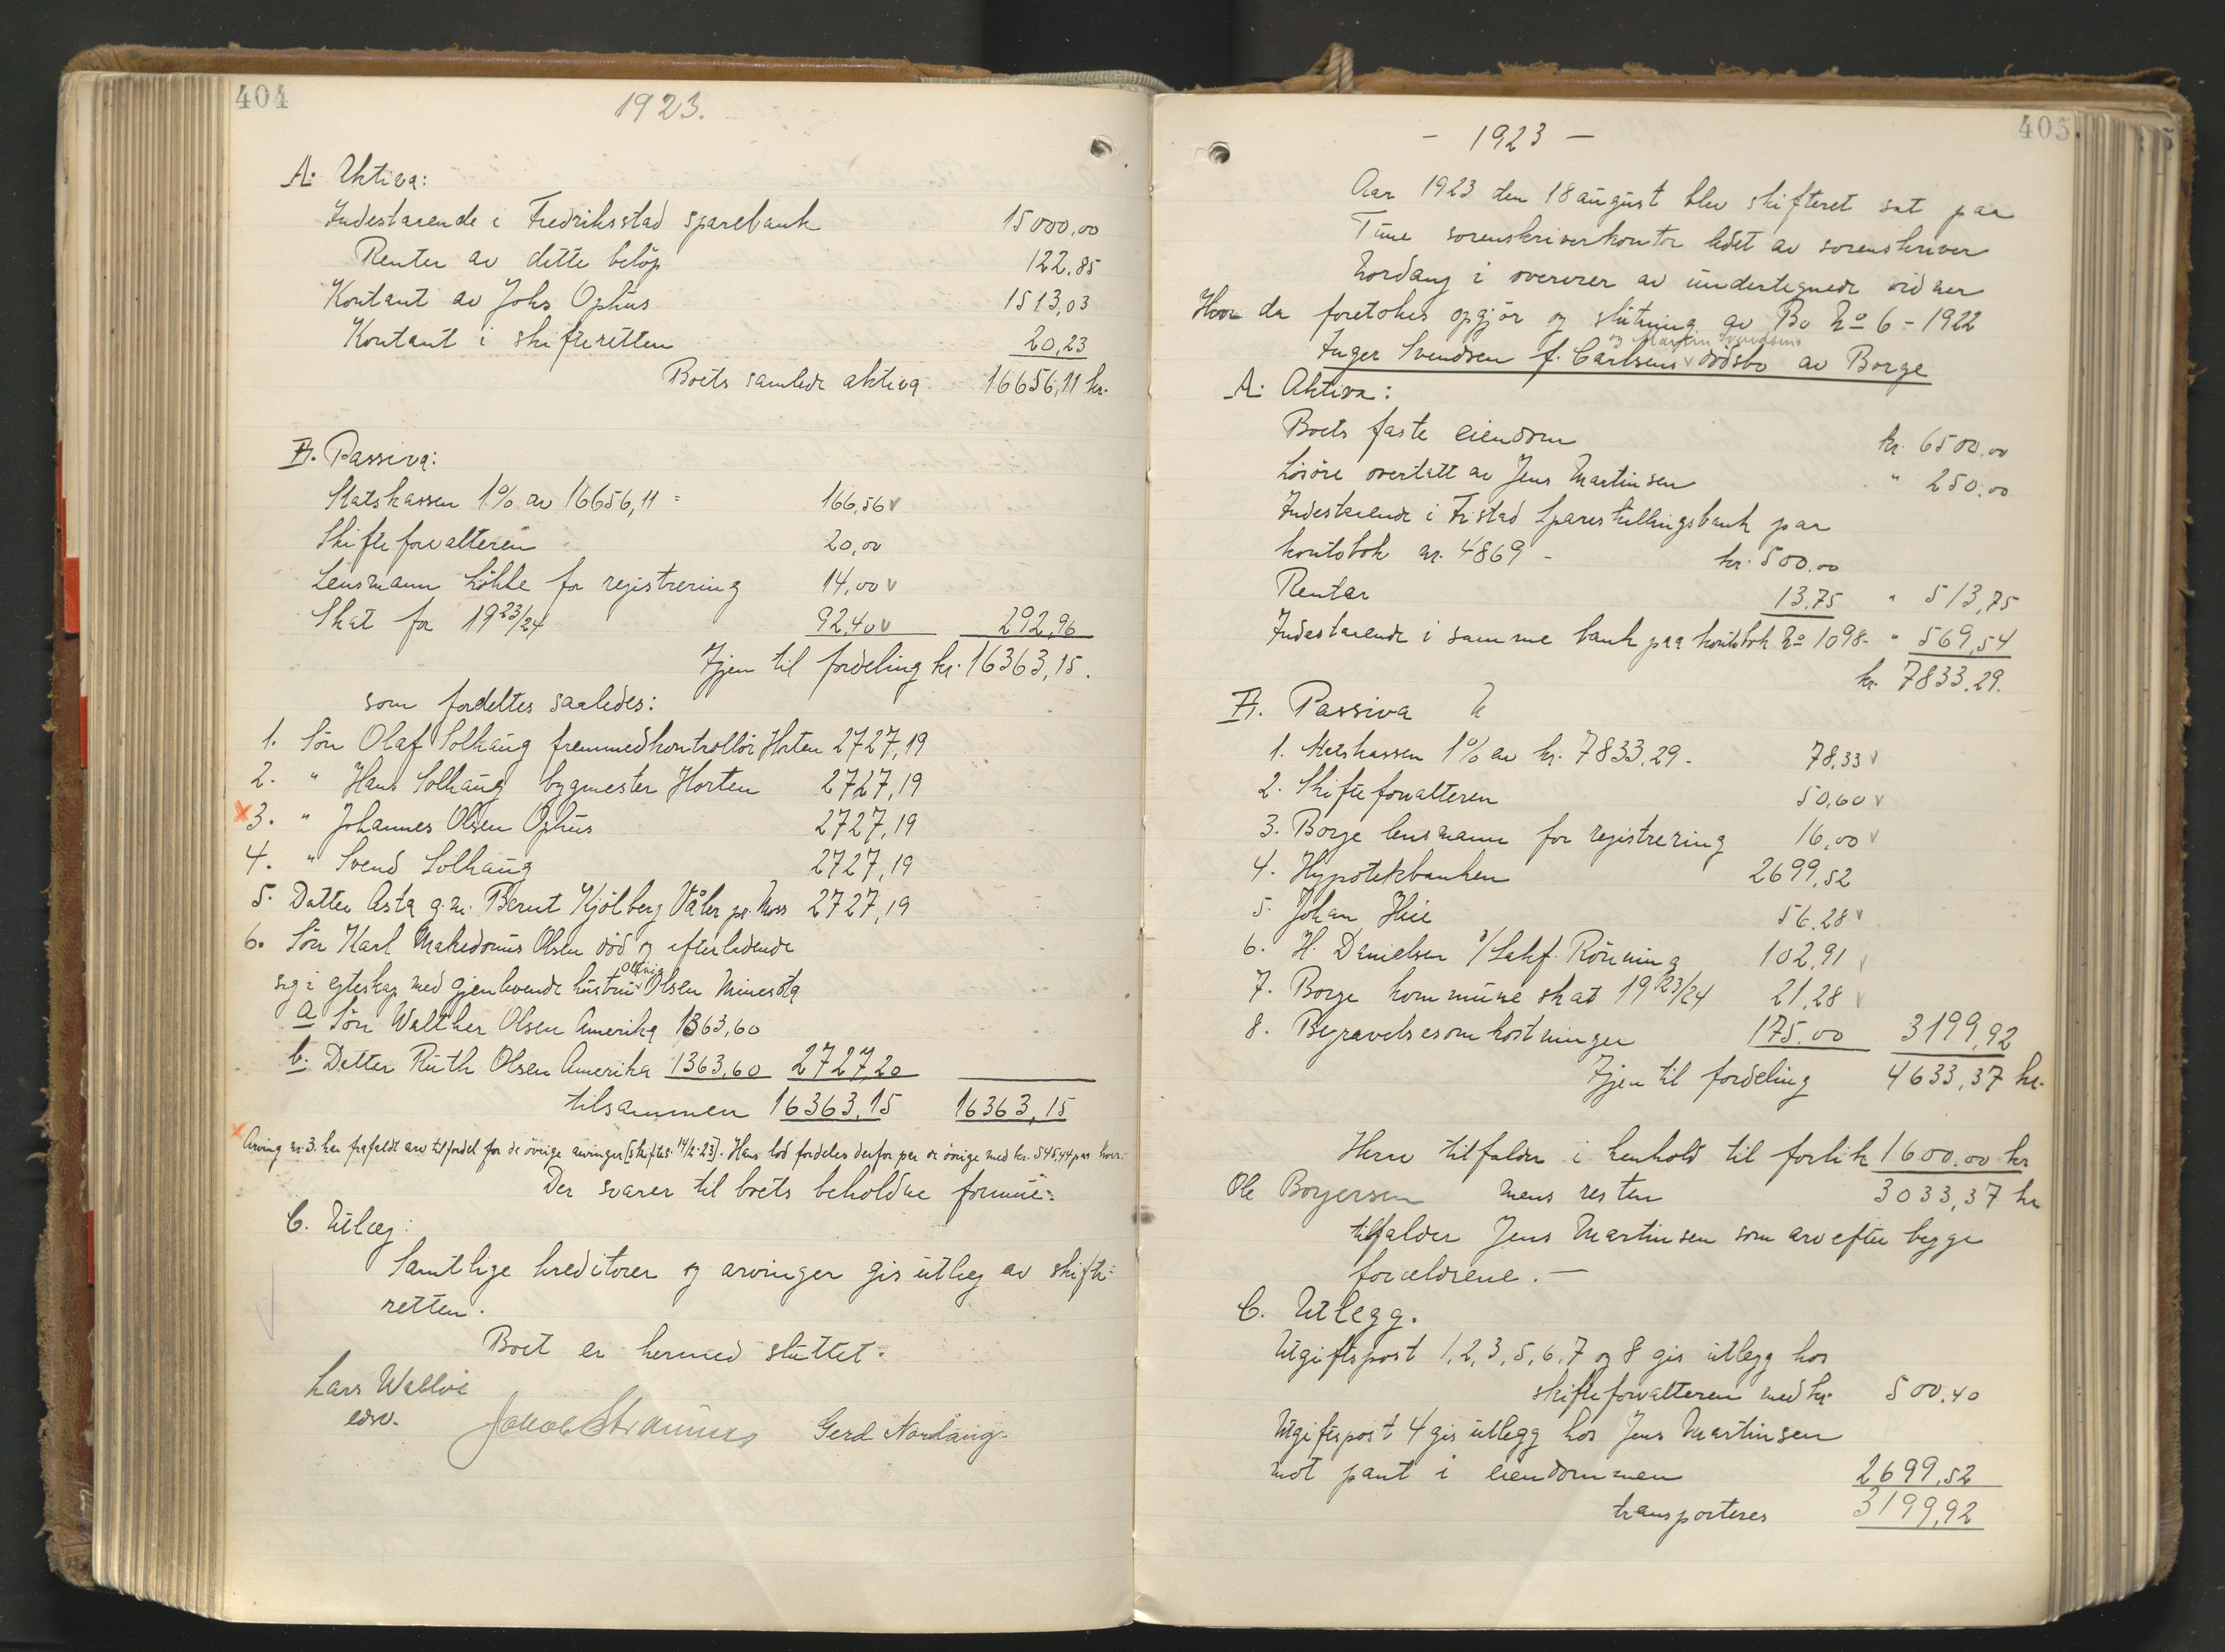 404
1923.
A. Aktiva:
Indestaaende i Fredriksstad sparebank 15000,00
Renter av dette beløp 122.85
Kontant av Johs Ophus 1513,03
Kontant i skifteretten 20,23
Boets samlede aktiva 16656,11 kr.
B. Passiva:
Statskassen 1% av 16656,11 = 166,56 v
Skifteforvalteren 20,00
Lensmann Løkke for registrering 14,00 v
Skat for 1923/24 92,40 v 292,96
Igjen til fordeling kr. 16363,15.
som fordeltes saaledes:
1. Søn Olaf Solhaug fremmedkontrollør Horten 2727,19
2. " Hans Solhaug bygmester Horten 2727,19
x 3. " Johannes Olsen Ophus 2727,19
4. " Svend Solhaug 2727,19
5. Datter Asta g.m. Bernt Kjølberg Våler pr. Moss 2727,19
6. Søn Karl Makedonius Olsen død og efterladende
sig i egteskap med gjenlevende hustru Olsen Minesota
a Søn Walther Olsen Amerika 1363,60
b. Datter Ruth Olsen Amerika 1363,60 2727,20
tilsammen 16363,15 16363,15
x Arving nr. 3 har frafaldt arv til fordel for de øvrige arvinger [skiftes. 14/2-23]. Hans lod fordeles derfor paa de øvrige med kr. 545,44 paa hver.
Der svarer til boets beholdne formue.
C. Utlæg:
Samtlige kreditorer og arvinger gis utlæg av skifte-
retten.
Boet er hermed sluttet.
Lars Wallöe
edsv.
Gerd Nordang.
405
- 1923 -
Aar 1923 den 18 august blev skifteret sat paa
Tune sorenskriverkontor ledet av sorenskriver
Nordang i overvær av undertegnede vidner
Hvor da foretokes opgjør og slutning av Bo No 6 - 1922
og Martin Svendsens
Inger Svendsen f. Carlsens v dødsbo av Borge
A. Aktiva:
Boets faste eiendom kr. 6500.00
Løsøre overtatt av Jens Martinsen " 250.00
Indestaaende i Fr.stad Spareskillingsbank paa
kontobok nr. 4869 - kr. 500.00
Renter 13.75 " 513,75
Indestaaende i samme bank paa kontobok No 1098 - " 569,54
kr. 7833.29.
B. Passiva
1. Statskassen 1% av kr. 7833,29. 78,33 v
2. Skifteforvalteren 50,60 v
3. Borge lensmann for registrering 16,00 v
4. Hypotekbanken 2699,52
5. Johan Hüe 56.28 v
6. H. Danielsen v/Sakf. Rønning 102,91 v
7. Borge kommune skat 1923/24 21,28 v
8. Begravelsesomkostninger 175.00 3199,92
Igjen til fordeling 4633,37 kr.
Herav tilfalder i henhold til forlik 1600.00 kr
Ole Borgersen mens resten 3033,37 kr
tilfalder Jens Martinsen som arv efter begge
forældrene. -
C. Utlegg.
Utgiftspost 1, 2, 3, 5, 6, 7 og 8 gis utlegg hos
skifteforvalteren med kr. 500.40
Utgiftspost 4 gis utlegg hos Jens Martinsen
mot pant i eiendommen 2699,52
transporteres 3199,92